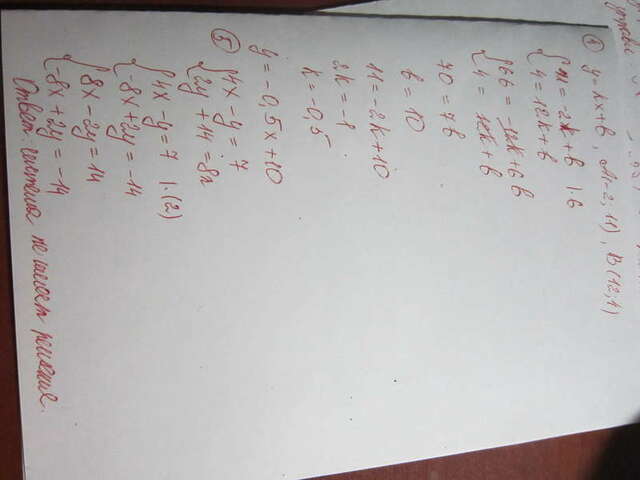 ④ y = kx + b, A(-2; 11), B(12; 4)
{ 11 = -2k + b | ·6
{ 4 = 12k + b
{ 66 = -12k + 6b
{ 4 = 12k + b
70 = 7b
b = 10
11 = -2k + 10
2k = -1
k = -0,5
y = -0,5x + 10
⑤ { 4x - y = 7
{ 2y + 14 = 8x
{ 4x - y = 7 | ·(2)
{ -8x + 2y = -14
{ 8x - 2y = 14
{ -8x + 2y = -14
Ответ: система не имеет решения.